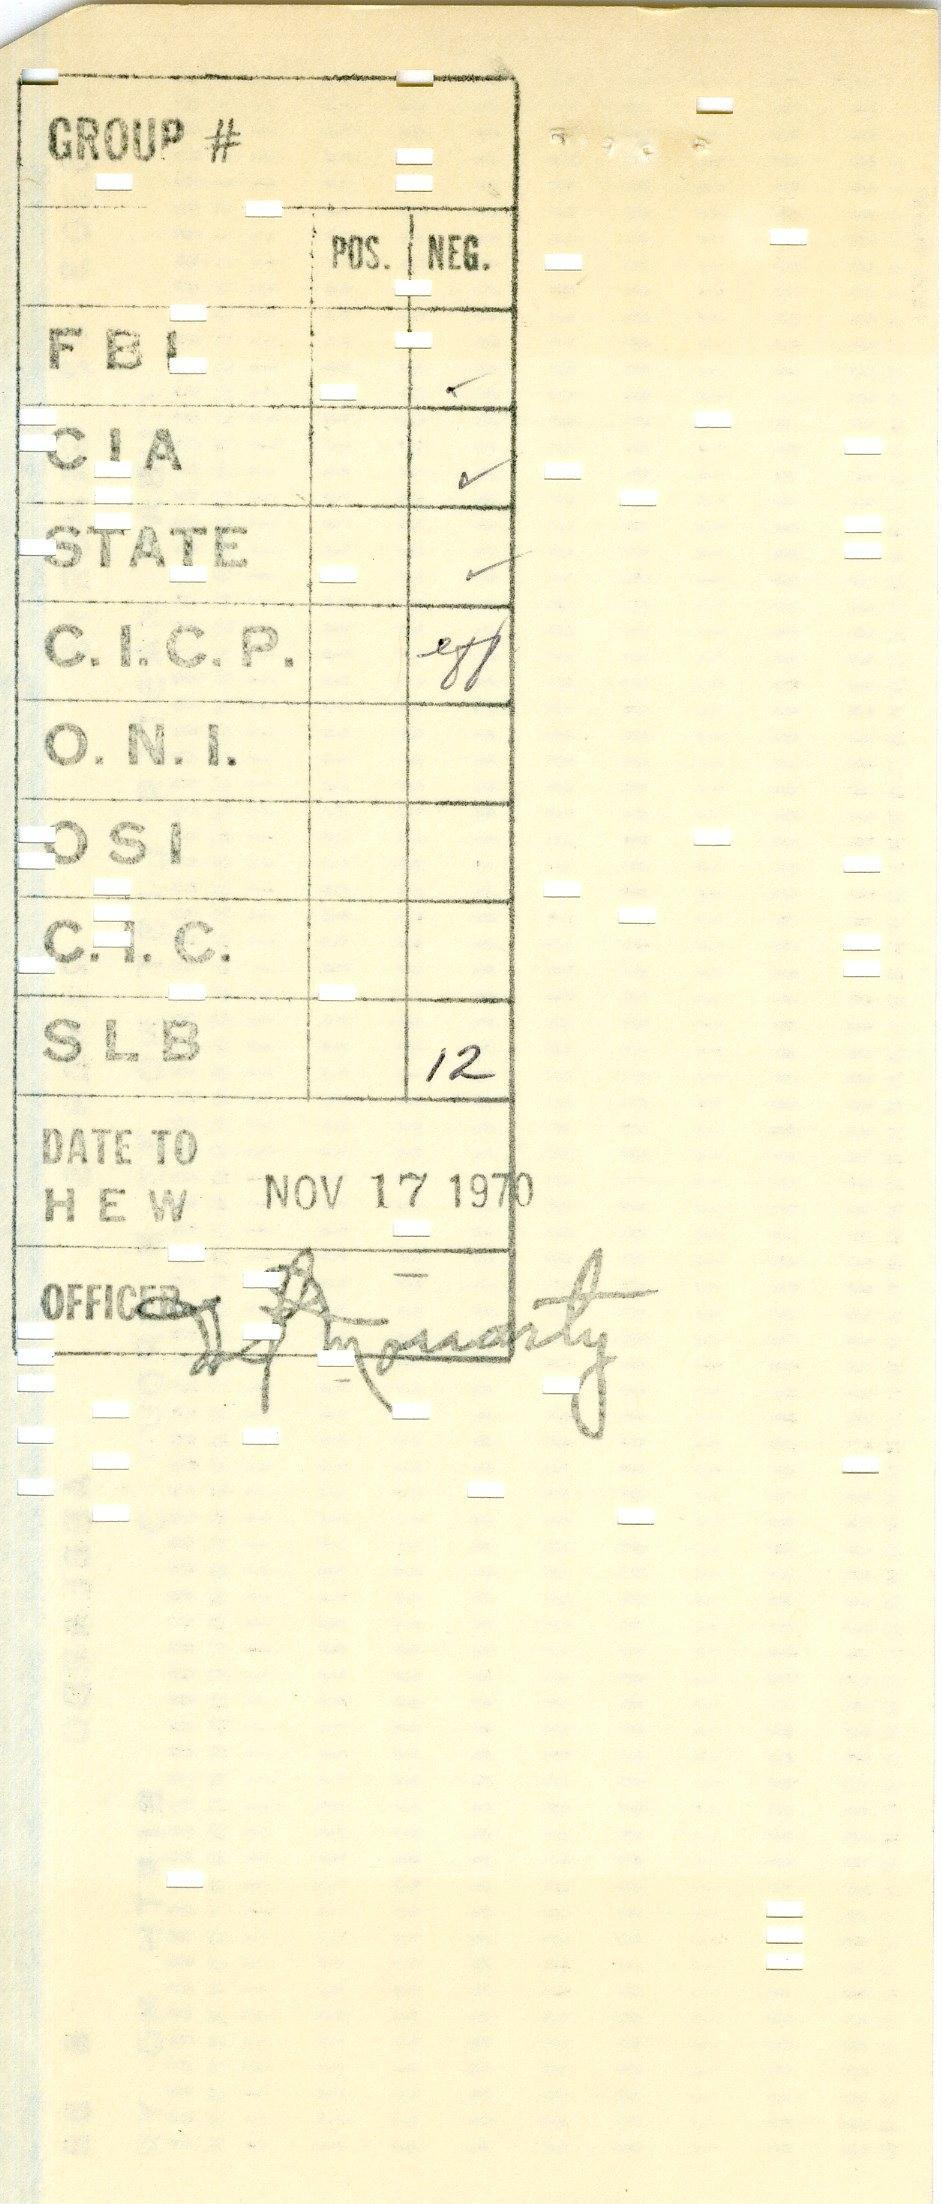 GROUP #
POS. NEG.
FBI ✓
CIA ✓
STATE ✓
C.I.C.P.
O.N.I.
OSI
C.I.C.
SLB 12
DATE TO
HEW NOV 17 1970
OFFICER Moriarty